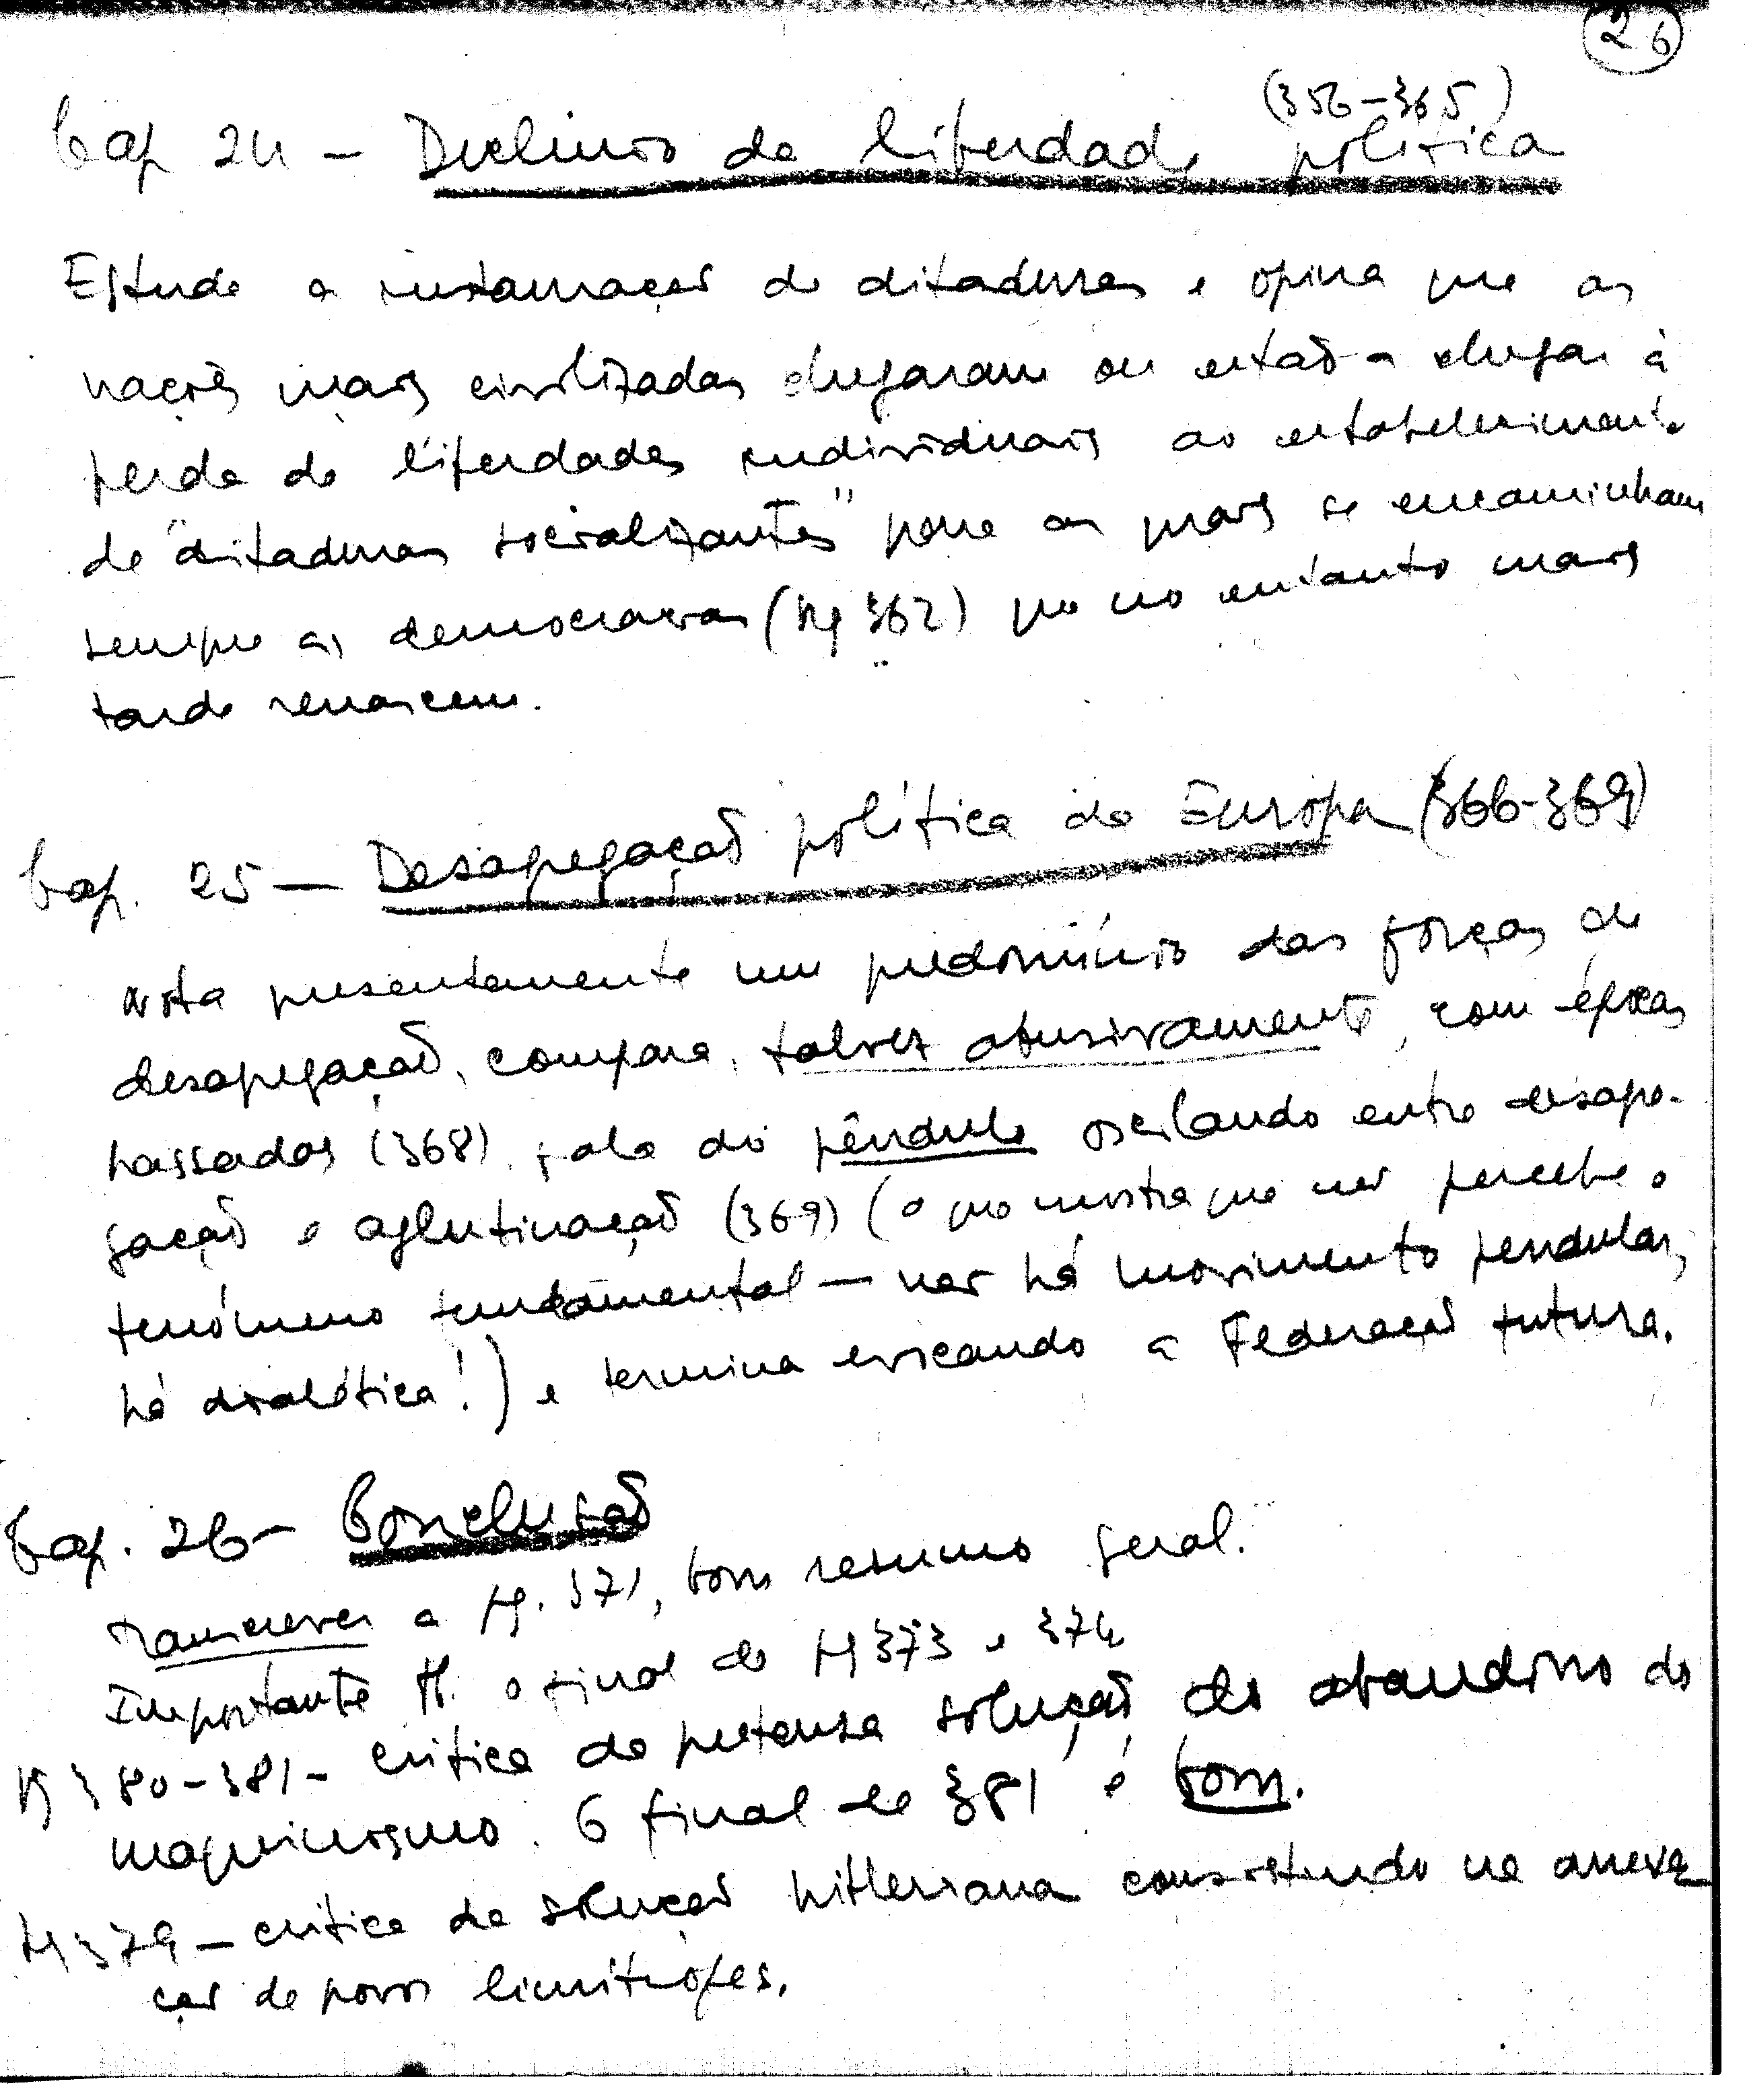 26
(356-365)
Cap 24 - Declínio da liberdade política
Estuda a instauração de ditaduras e opina que as
nações mais civilizadas chegaram ou estão a chegar à
perda de liberdades individuais ao estabelecimento
de "ditaduras socializantes" para as quais se encaminham
sempre as democracias (pg 362) que no entanto mais
tarde renascem.
Cap. 25 - Desagregação política da Europa (366-369)
Nota presentemente um predomínio das forças de
desagregação, compara, talvez abusivamente, com épocas
passadas (368), fala do pêndulo oscilando entre desagre-
gação e aglutinação (369) (o que mostra que não percebe o
fenómeno fundamental - não há movimento pendular,
há dialética!) e termina evocando a Federação futura.
Cap. 26 - Conclusão
Transcrever a pg. 371, bom resumo geral.
Importante o final de pg 373 e 374
pg 380-381 - crítica da pretensa solução do abandono do
maquinismo. O final de 381 é bom.
pg 379 - crítica da solução hitleriana consistindo na anexa
ção de povos limítrofes.